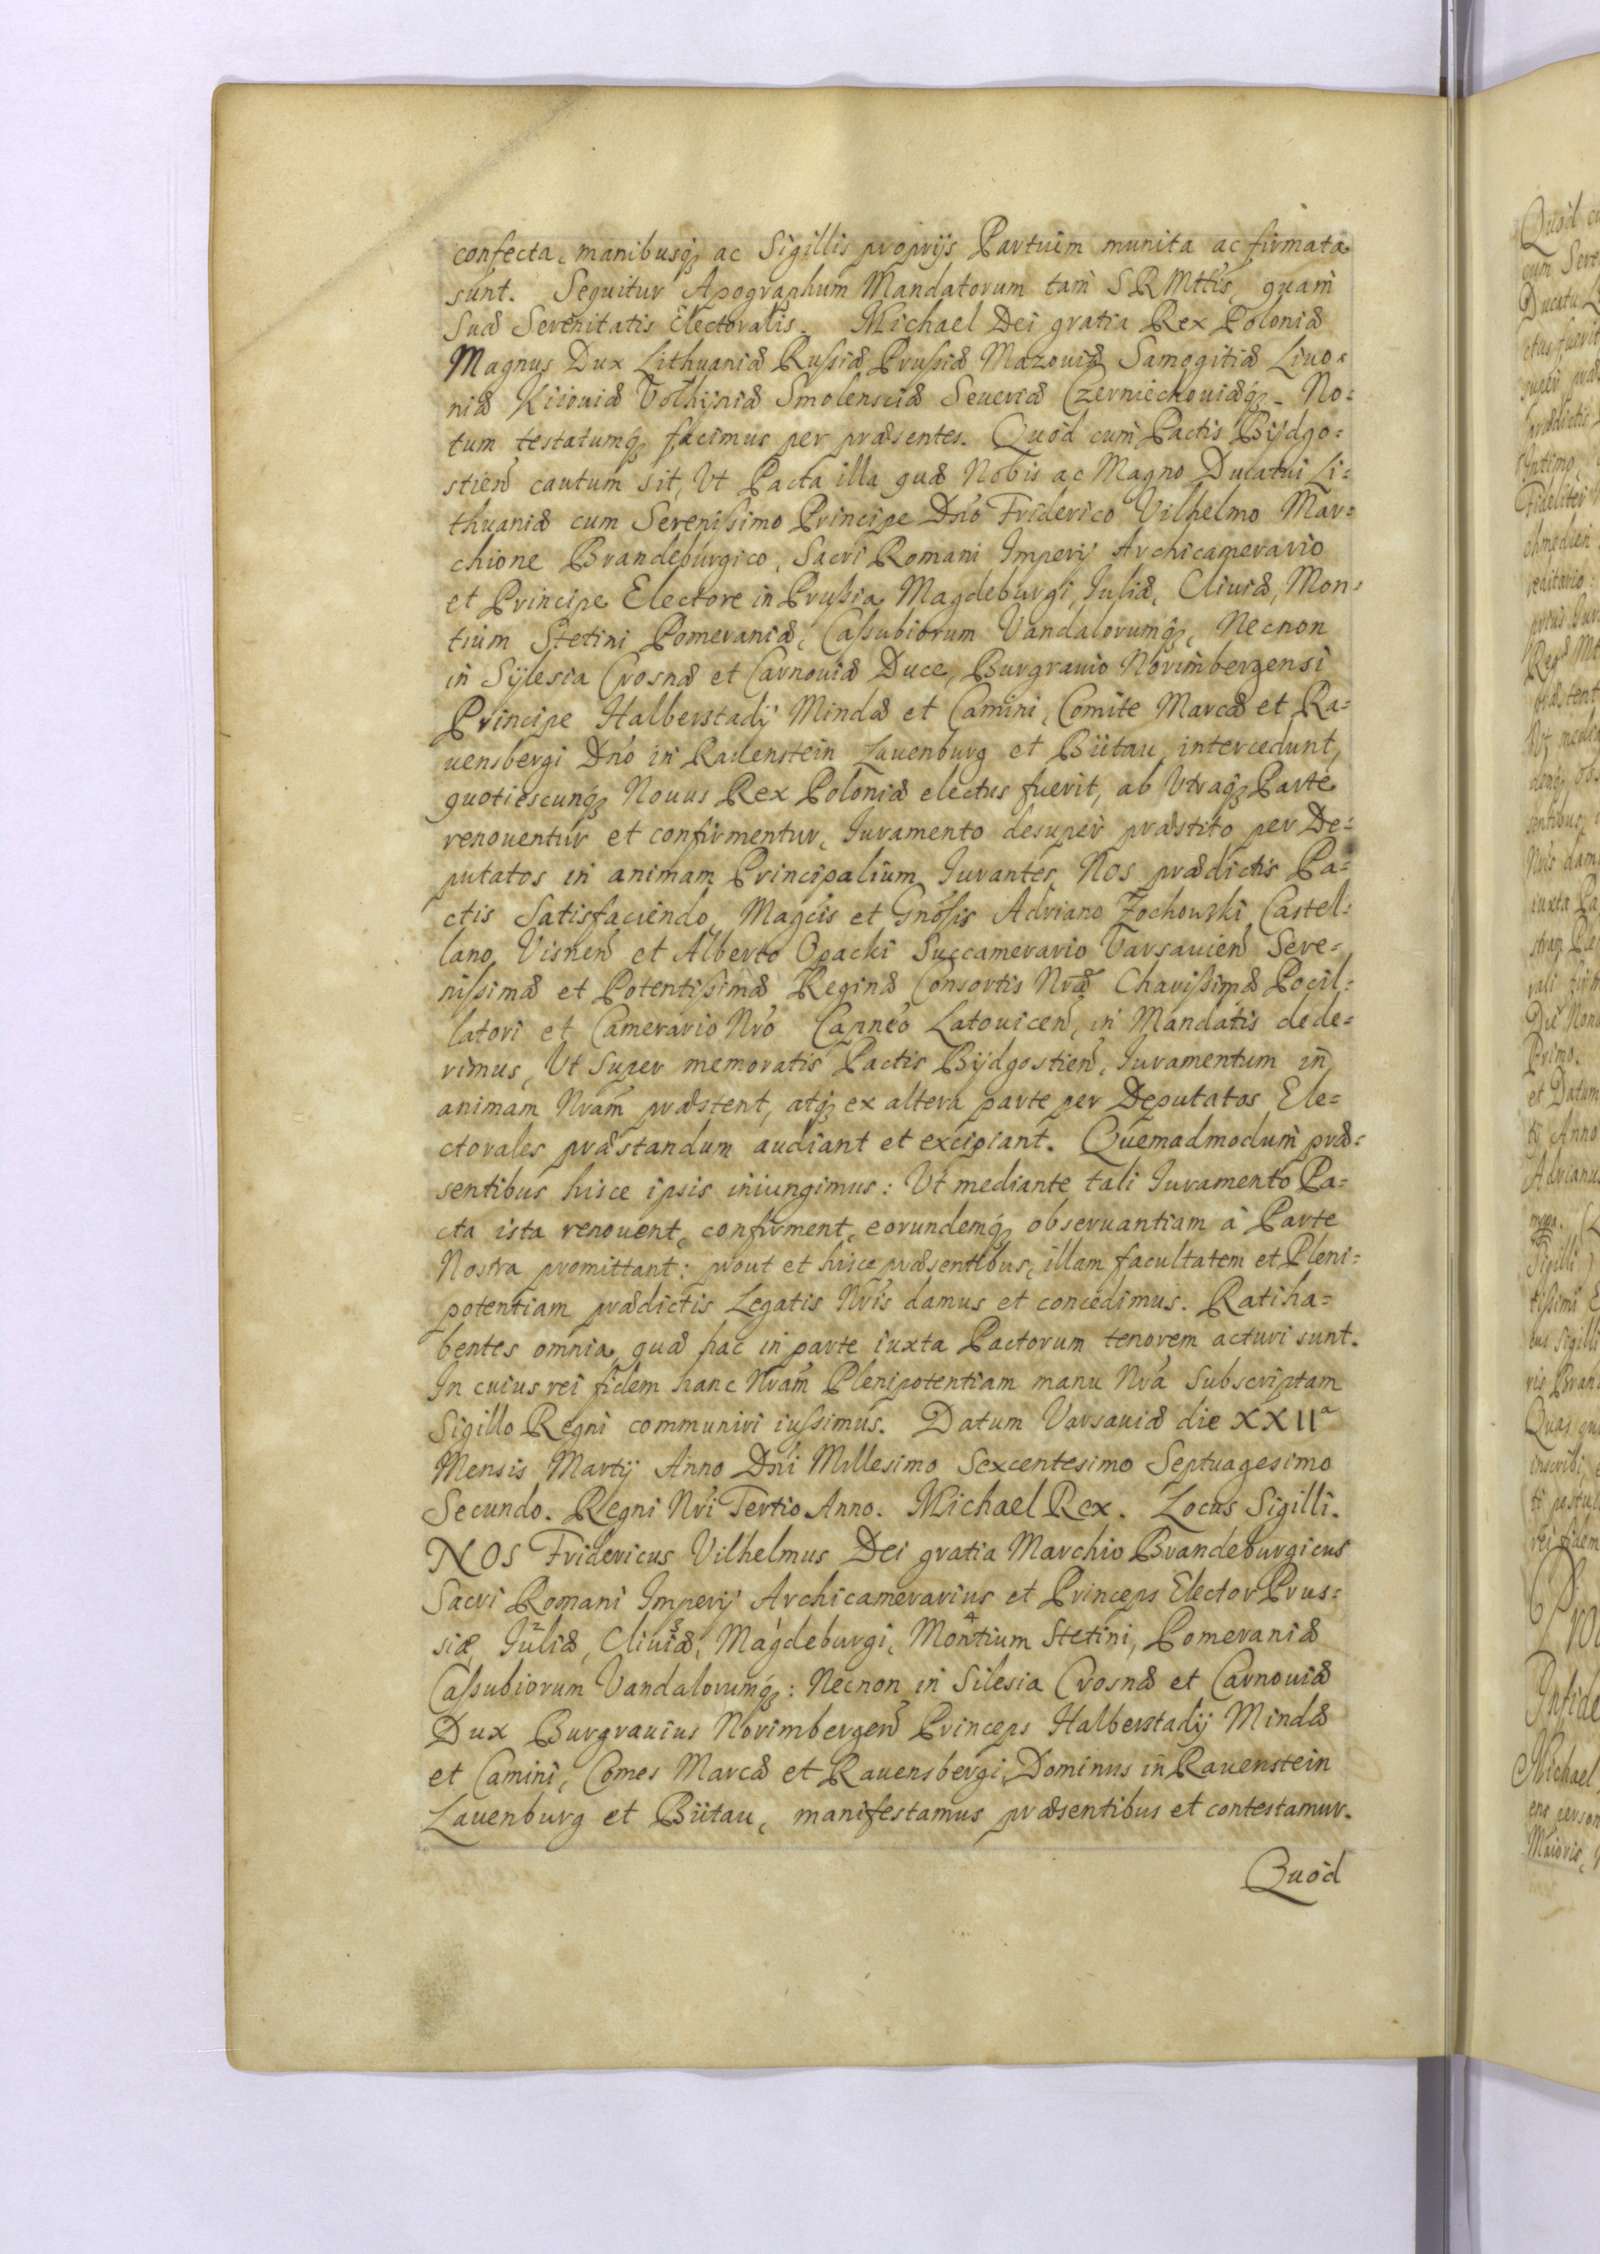 confecta, manibusq3 ac Sigillis proprijs Partium munita ac firmata
sunt. Sequitur Apographum Mandatorum tam S R Mttis, quam
Suæ Serenitatis Electoralis. Michael Dei gratia Rex Poloniæ
Magnus Dux Lithuaniæ Rußiæ Prußiæ Mazouiæ Samogitiæ Liuo=
niæ Kiiouiæ Volhijniæ Smolensciæ Seueriæ Czerniechouiæq3. No=
tum testatumq3 facimus per præsentes. Quod cum Pactis Bijdgo=
stien̄ cautum sit, Vt Pacta illa quæ Nobis ac Magno Ducatui Li=
thuaniæ cum Serenißimo Principe Dno Friderico Vilhelmo Mar=
chione Brandeburgico, Sacri Romani Imperij Archicamerario
et Principe Electore in Prußia, Magdeburgi, Iuliæ, Cliuiæ, Mon=
tium Stetini Pomeraniæ, Caßubiorum Vandalorumq3, Necnon
in Sÿlesia Crosnæ et Carnouiæ Duce, Burgrauio Norimbergensi
Principe Halberstadij Mindæ et Camini, Comite Marcæ et Ra=
uensbergi Dno in Rauenstein Lauenburg et Bütau, intercedunt,
quotiescunq3 Nouus Rex Poloniæ electus fuerit, ab Vtraq3 Parte
renouentur et confirmentur, Iuramento desuper præstito per De=
putatos in animam Principalium Iurantes, Nos prædictis Pa=
ctis Satisfaciendo, Magcis et Gnosis Adriano Zochowski Castel=
lano Visnen̄ et Alberto Opacki Succamerario Varsauien̄ Sere=
nißimæ et Potentißimæ Reginæ Consortis Nræ Charißimæ Pocil=
latori et Camerario Nro Capneo Latouicen̄, in Mandatis dede=
rimus, Vt Super memoratis Pactis Bijdgostien̄, Iuramentum in
animam Nram præstent, atq3 ex altera parte per Deputatos Ele=
ctorales præstandum audiant et excipiant. Quemadmodum præ=
sentibus hisce ipsis iniungimus: Vt mediante tali Iuramento Pa=
cta ista renouent, confirment, eorundemq3 obseruantiam à Parte
Nostra promittant: prout et hisce præsentibus, illam facultatem et Pleni=
potentiam prædictis Legatis Nris damus et concedimus. Ratiha=
bentes omnia, quæ hac in parte iuxta Pactorum tenorem acturi sunt.
In cuius rei fidem hanc Nram Plenipotentiam manu Nra Subscriptam
Sigillo Regni communiri iußimus. Datum Varsauiæ die XXIIa
Mensis Martij Anno Dni Millesimo Sexcentesimo Septuagesimo
Secundo. Regni Nri Tertio Anno. Michael Rex. Locus Sigilli.
NOS Fridericus Vilhelmus Dei gratia Marchio Brandeburgicus
Sacri Romani Imperij Archicamerarius et Princeps Elector Prus=
siæ, Iuliæ, Cliuiæ, Magdeburgi, Montium Stetini, Pomeraniæ
Caßubiorum Vandalorumq3: Necnon in Silesia Crosnæ et Carnouiæ
Dux Burgrauius Norimbergen̄ Princeps Halberstadij Mindæ
et Camini, Comes Marcæ et Rauensbergi, Dominus in Rauenstein
Lauenburg et Bütau, manifestamus præsentibus et contestamur.
Quod